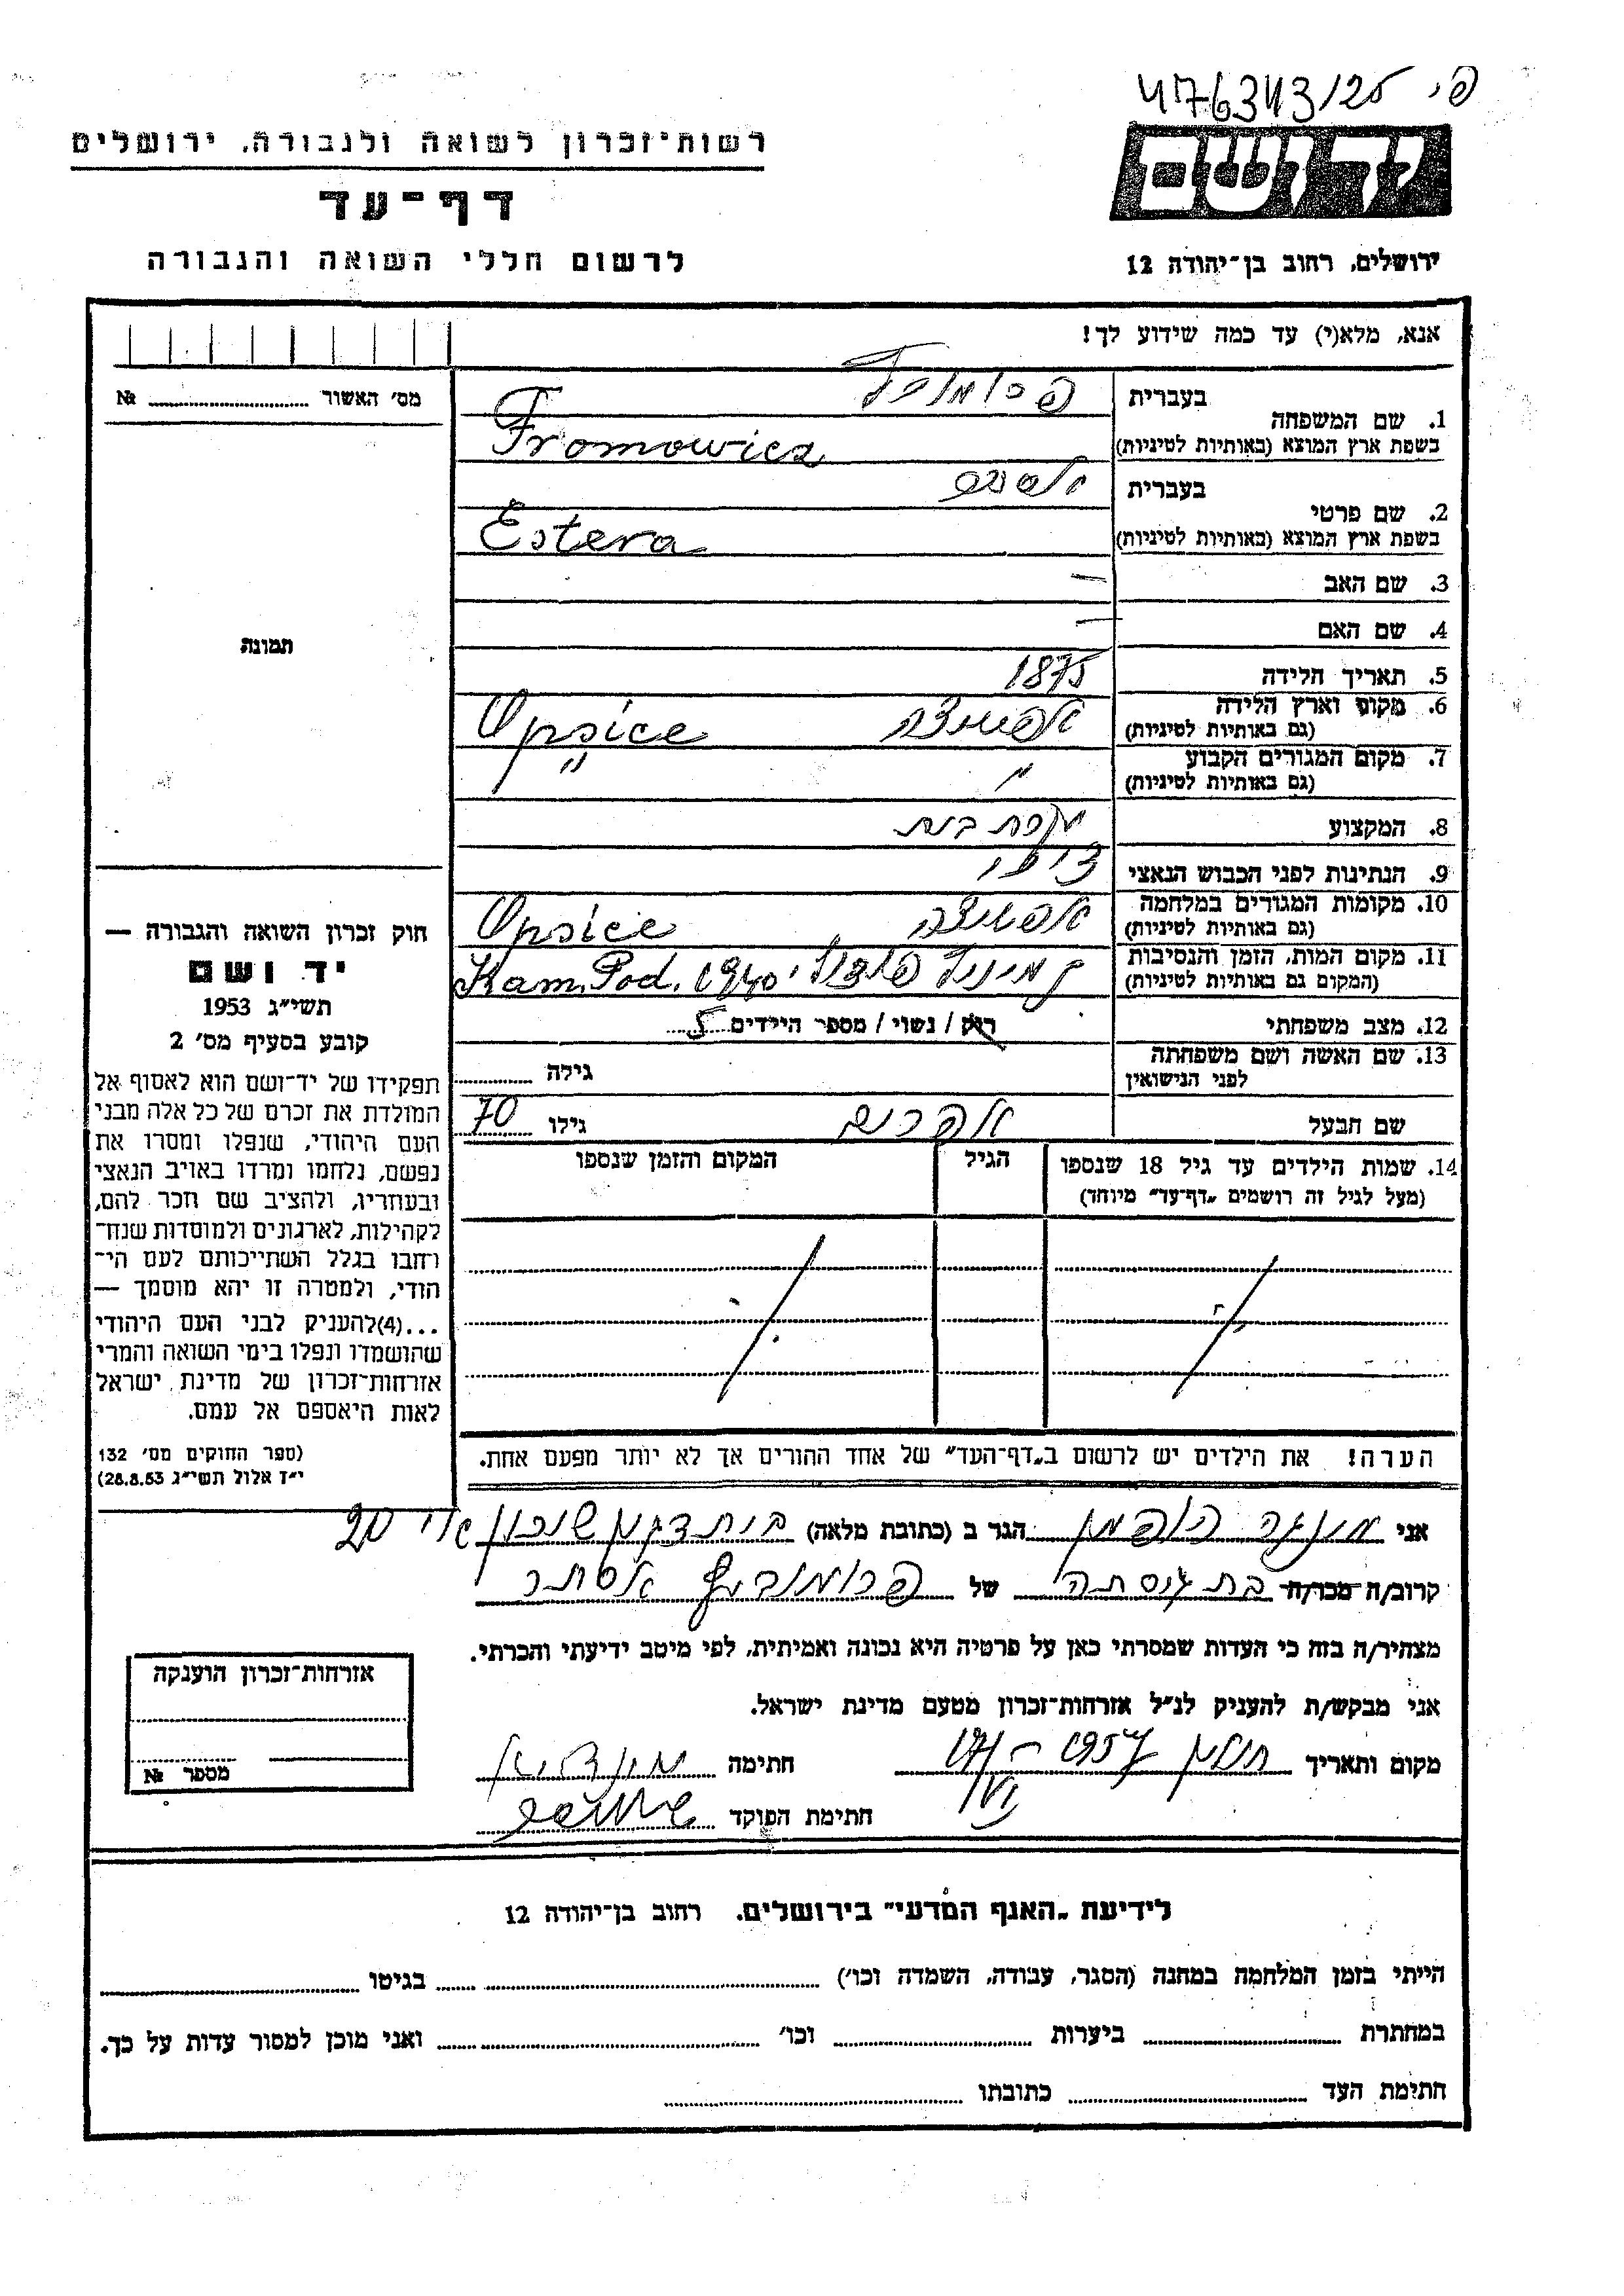 פי 476343/25
ידושם
רשות־זכרון לשואה ולגבורה, ירושלים
דף־עד
לרשום חללי השואה והגבורה
ירושלים, רחוב בן־יהודה 12
אנא, מלא(י) עד כמה שידוע לך!
מס' האשור № ........
תמונה
בעברית
1. שם המשפחה
בשפת ארץ המוצא (באותיות לטיניות) Fromowicz
בעברית
2. שם פרטי
בשפת ארץ המוצא (באותיות לטיניות) Estera
3. שם האב —
4. שם האם —
5. תאריך הלידה 1875
6. מקום וארץ הלידה
(גם באותיות לטיניות)
7. מקום המגורים הקבוע
(גם באותיות לטיניות) " "
8. המקצוע עקרת בית
9. הנתינות לפני הכבוש הנאצי
10. מקומות המגורים במלחמה
(גם באותיות לטיניות)
11. מקום המות, הזמן והנסיבות
(המקום גם באותיות לטיניות) Kam. Pod. 1940
12. מצב משפחתי רוק / נשוי / מספר הילדים 5
13. שם האשה ושם משפחתה
לפני הנישואין גילה ........
שם הבעל גילו 70
14. שמות הילדים עד גיל 18 שנספו
(מעל לגיל זה רושמים „דף־עד" מיוחד)
הגיל
המקום והזמן שנספו
הערה! את הילדים יש לרשום ב„דף־העד" של אחד ההורים אך לא יותר מפעם אחת.
חוק זכרון השואה והגבורה —
יד ושם
תשי״ג 1953
קובע בסעיף מס' 2
תפקידו של יד־ושם הוא לאסוף אל
המולדת את זכרם של כל אלה מבני
העם היהודי, שנפלו ומסרו את
נפשם, נלחמו ומרדו באויב הנאצי
ובעוזריו, ולהציב שם וזכר להם,
לקהילות, לארגונים ולמוסדות שנח־
רבו בגלל השתייכותם לעם הי־
הודי, ולמטרה זו יהא מוסמך —
...(4)להעניק לבני העם היהודי
שהושמדו ונפלו בימי השואה והמרי
אזרחות־זכרון של מדינת ישראל
לאות היאספם אל עמם.
(ספר החוקים מס' 132
י״ז אלול תשי״ג 28.8.53)
אני הופמן הגר ב (כתובת מלאה) בית דגן שיכון 20
קרוב/ה מכר/ה בת גיסתה של פרומוביץ אסתר
מצהיר/ה בזה כי העדות שמסרתי כאן על פרטיה היא נכונה ואמיתית, לפי מיטב ידיעתי והכרתי.
אני מבקש/ת להעניק לנ״ל אזרחות־זכרון מטעם מדינת ישראל.
מקום ותאריך 1957 חתימה
חתימת הפוקד
אזרחות־זכרון הוענקה
מספר №
לידיעת „האגף המדעי" בירושלים. רחוב בן־יהודה 12
הייתי בזמן המלחמה במחנה (הסגר, עבודה, השמדה וכו') ........ בגיטו ........
במחתרת ........ ביערות ........ וכו' ........ ואני מוכן למסור עדות על כך.
חתימת העד ........ כתובתו ........